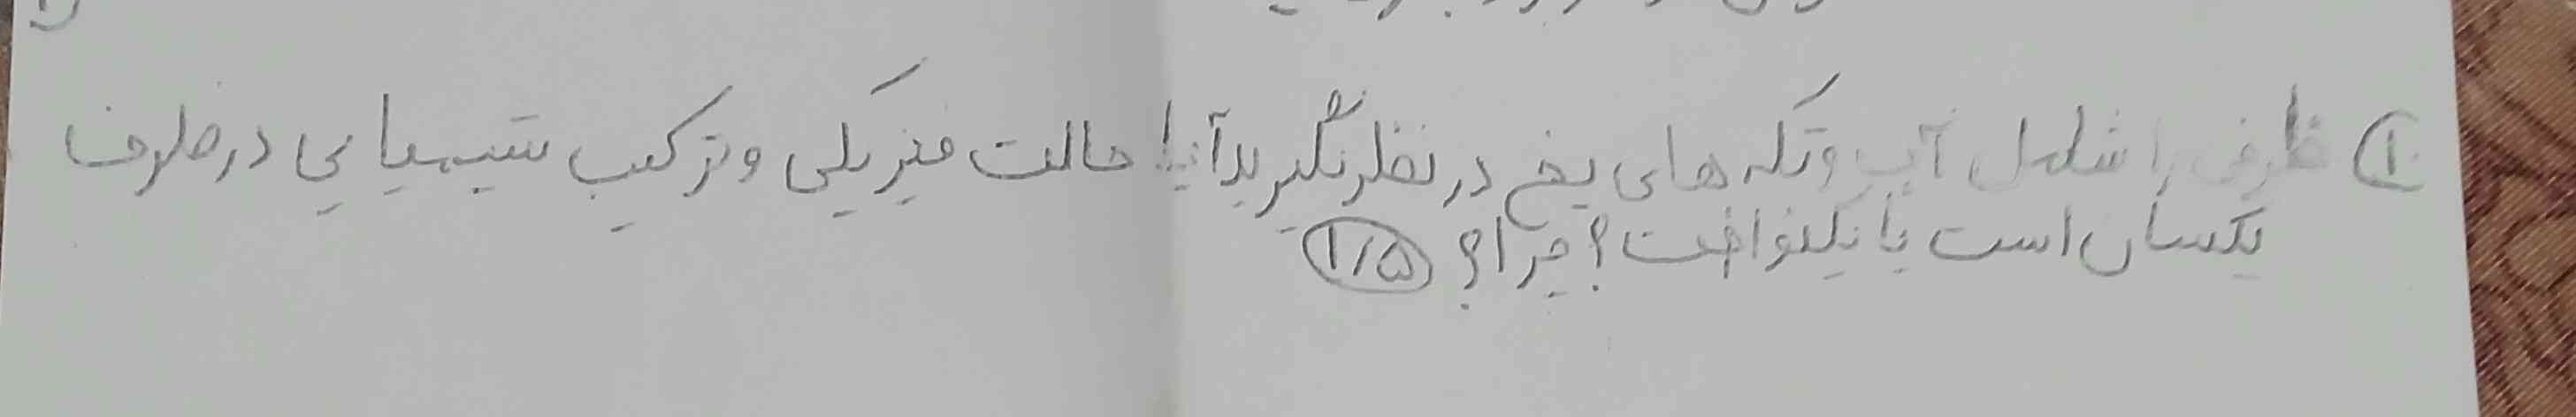 ۱) ظرفی را شامل آب و تکه های یخ در نظر بگیرید آیا حالت فیزیکی و ترکیب شیمیایی در ظرف
یکسان است یا یکنواخت؟ چرا؟ ۱/۵